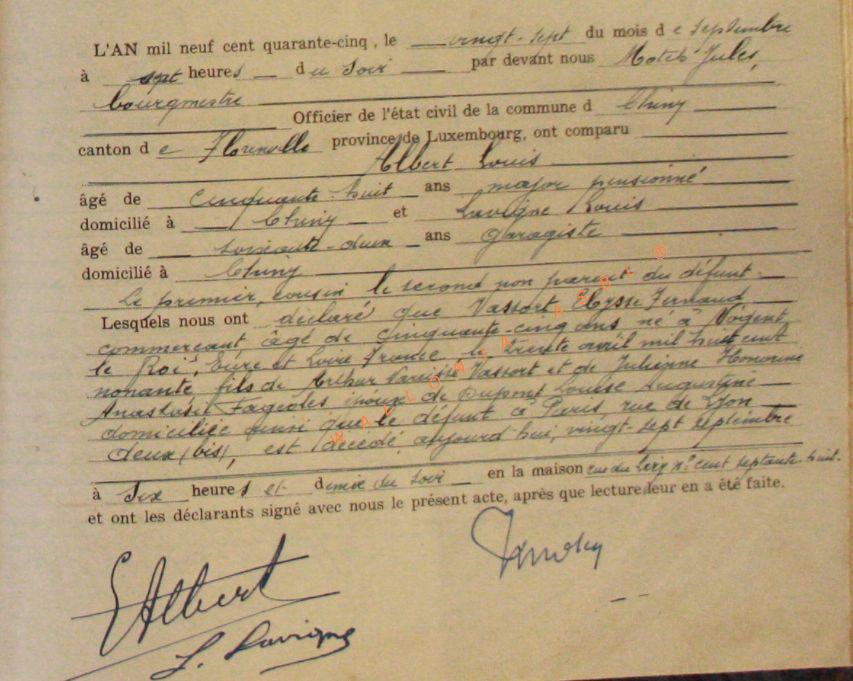 L'AN mil neuf cent quarante-cinq, le vingt-sept du mois d e septembre
à sept heures du soir par devant nous Jules,
bourgmestre
Officier de l'état civil de la commune d Chiny
canton d e Florenville province de Luxembourg, ont comparu
Albert Louis
âgé de cinquante-huit ans major pensionné
domicilié à Chiny et Lavigne Louis
âgé de soixante-deux ans garagiste
domicilié à Chiny
Le premier, cousin le second non parent du défunt
Lesquels nous ont déclaré que Vassort Elysse Fernand
commerçant, âgé de cinquante-cinq ans né à Nogent
le Roi, Eure et Loire France le trente avril mil huit cent
nonante fils de Arthur Vassort et de Julienne Honorine
Anastasie époux de Dupont Louise Augustine
domiciliée ainsi que le défunt à Paris, rue de Lyon
deux (bis), est décédé aujourd'hui, vingt-sept septembre
à six heures et demie du soir en la maison rue du n° cent septante-huit
et ont les déclarants signé avec nous le présent acte, après que lecture leur en a été faite.
Albert
L. Lavigne